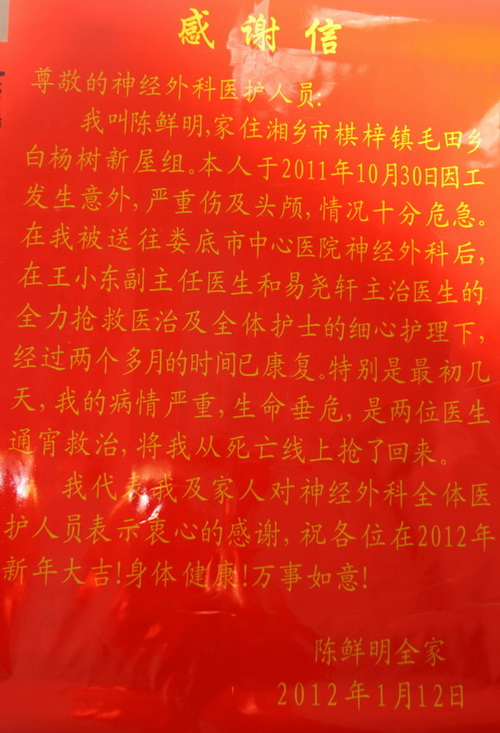 感谢信
尊敬的神经外科医护人员:
我叫陈鲜明,家住湘乡市棋梓镇毛田乡
白杨树新屋组。本人于2011年10月30日因工
发生意外,严重伤及头颅,情况十分危急。
在我被送往娄底市中心医院神经外科后,
在王小东副主任医生和易尧轩主治医生的
全力抢救医治及全体护士的细心护理下,
经过两个多月的时间已康复。特别是最初几
天,我的病情严重,生命垂危,是两位医生
通宵救治,将我从死亡线上抢了回来。
我代表我及家人对神经外科全体医
护人员表示衷心的感谢,祝各位在2012年
新年大吉!身体健康!万事如意!
陈鲜明全家
2012年1月12日